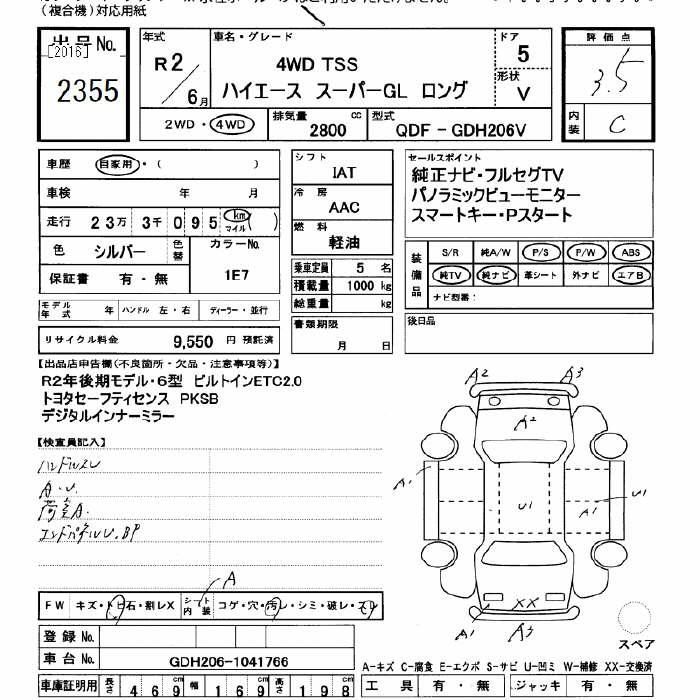 (複合機)対応用紙
出品No.
[2016]
2355
年式
R2/6月
車名・グレード
4WD TSS
ハイエース スーパーGL ロング
ドア
5
形状
V
2WD・4WD
排気量
2800 cc
型式
QDF-GDH206V
評価点
3.5
内装
C
車歴 自家用・( )
車検 年 月
走行 23万3千095 km マイル( )
色 シルバー 色替 カラーNo. 1E7
保証書 有・無
モデル年式 年 ハンドル 左・右 ディーラー・並行
リサイクル料金 9,550 円 預託済
シフト
IAT
冷房
AAC
燃料
軽油
乗車定員 5 名
積載量 1000 kg
総重量 kg
書類期限
月 日
セールスポイント
純正ナビ・フルセグTV
パノラミックビューモニター
スマートキー・Pスタート
装備品
S/R 純A/W P/S P/W ABS
純TV 純ナビ 革シート 外ナビ エアB
ナビ型番:
後日品
【出品店申告欄(不良箇所・欠品・注意事項等)】
R2年後期モデル・6型 ビルトインETC2.0
トヨタセーフティセンス PKSB
デジタルインナーミラー
【検査員記入】
ハンドルスレ
A・U
荷室A.
エンドパネルU.BP
A2 A3
A2
A1 U1 A1 U1
XX
A1 A3
スペア
A
FW キズ・トビ石・割レX シート内装 コゲ・穴・汚レ・シミ・破レ・スレ
登録No.
車台No. GDH206-1041766
車庫証明用 長さ 469 幅 169 高さ 198
A-キズ C-腐食 E-エクボ S-サビ U-凹ミ W-補修 XX-交換済
工具 有・無 ジャッキ 有・無